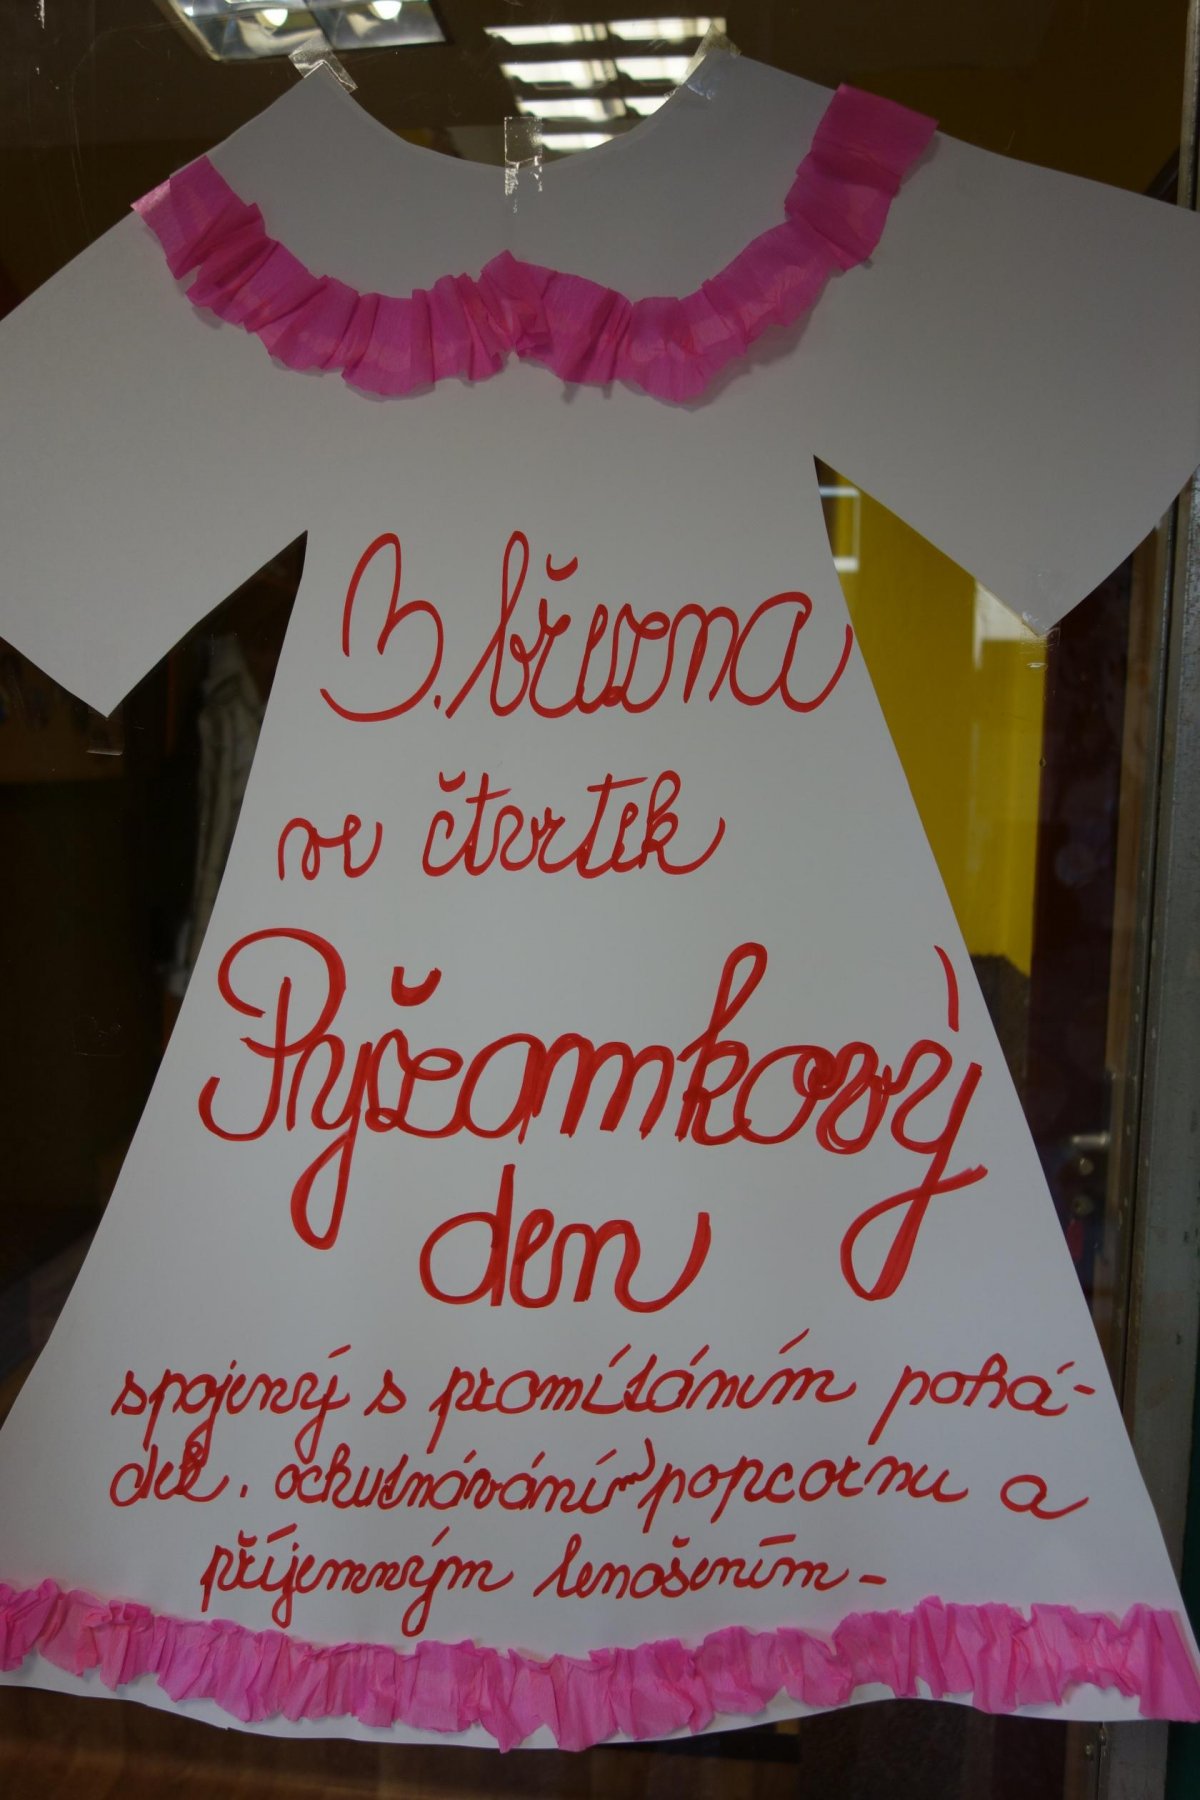 3. března
ve čtvrtek
Pyžamkový
den
spojený s promítáním pohá-
dek. ochutnáváním popcornu a
příjemným lenošením-